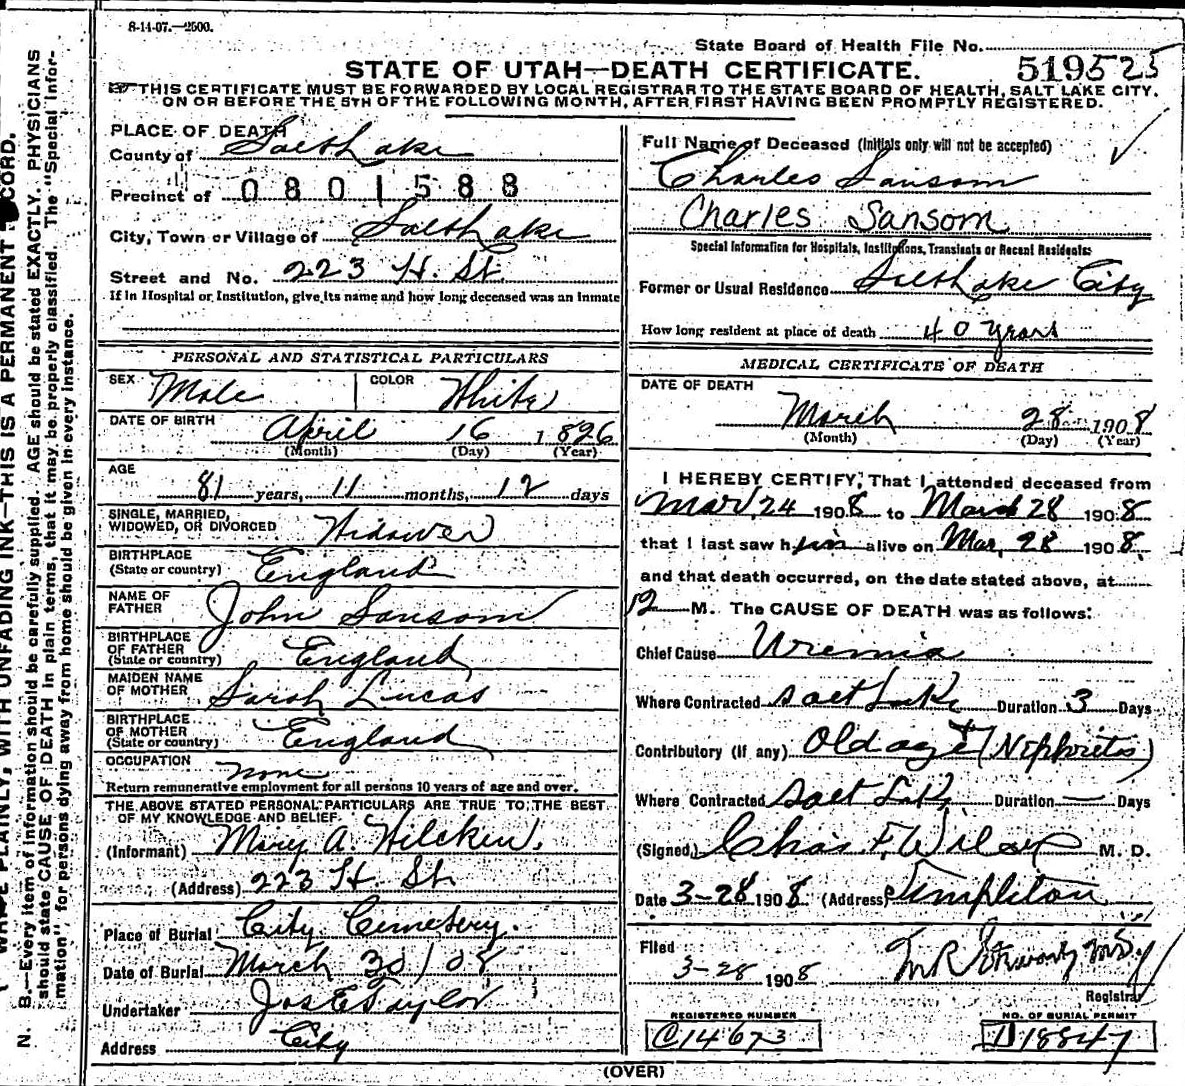 8-14-07.—2500.
State Board of Health File No.
519525
STATE OF UTAH—DEATH CERTIFICATE.
THIS CERTIFICATE MUST BE FORWARDED BY LOCAL REGISTRAR TO THE STATE BOARD OF HEALTH, SALT LAKE CITY,
ON OR BEFORE THE 5TH OF THE FOLLOWING MONTH, AFTER FIRST HAVING BEEN PROMPTLY REGISTERED.
PLACE OF DEATH
County of Salt Lake
Precinct of 0801588
City, Town or Village of Salt Lake
Street and No. 223 H. St
If in Hospital or Institution, give its name and how long deceased was an inmate
PERSONAL AND STATISTICAL PARTICULARS
SEX Male COLOR White
DATE OF BIRTH April 16 1826
(Month) (Day) (Year)
AGE
81 years, 11 months, 12 days
SINGLE, MARRIED,
WIDOWED, OR DIVORCED Widower
BIRTHPLACE
(State or country) England
NAME OF
FATHER John Sansom
BIRTHPLACE
OF FATHER
(State or country) England
MAIDEN NAME
OF MOTHER Sarah Lucas
BIRTHPLACE
OF MOTHER
(State or country) England
OCCUPATION none
Return remunerative employment for all persons 10 years of age and over.
THE ABOVE STATED PERSONAL PARTICULARS ARE TRUE TO THE BEST
OF MY KNOWLEDGE AND BELIEF
(Informant) Mary A. Hilcken.
(Address) 223 H. St.
Place of Burial City Cemetery.
Date of Burial March 30/08
Undertaker Jos E Taylor
Address City
Full Name of Deceased (Initials only will not be accepted)
Charles Sansom
Charles Sansom
Special Information for Hospitals, Institutions, Transients or Recent Residents
Former or Usual Residence Salt Lake City
How long resident at place of death 40 years
MEDICAL CERTIFICATE OF DEATH
DATE OF DEATH
March 28 1908
(Month) (Day) (Year)
I HEREBY CERTIFY, That I attended deceased from
Mar 24 1908 to March 28 1908
that I last saw him alive on Mar. 28 1908
and that death occurred, on the date stated above, at
12 M. The CAUSE OF DEATH was as follows:
Chief Cause Uremia
Where Contracted Salt Lake Duration 3 Days
Contributory (if any) Old age + (Nephritis)
Where Contracted Salt Lk. Duration — Days
(Signed) Chas F. Wilcox M. D.
Date 3-28 1908 (Address) Templeton
Filed
3-28 1908
Registrar
REGISTERED NUMBER
C14673
NO. OF BURIAL PERMIT
D18847
(OVER)
PLAINLY, WITH UNFADING INK—THIS IS A PERMANENT RECORD.
N. B.—Every item of information should be carefully supplied. AGE should be stated EXACTLY. PHYSICIANS
should state CAUSE OF DEATH in plain terms, that it may be properly classified. The "Special Infor-
mation" for persons dying away from home should be given in every instance.